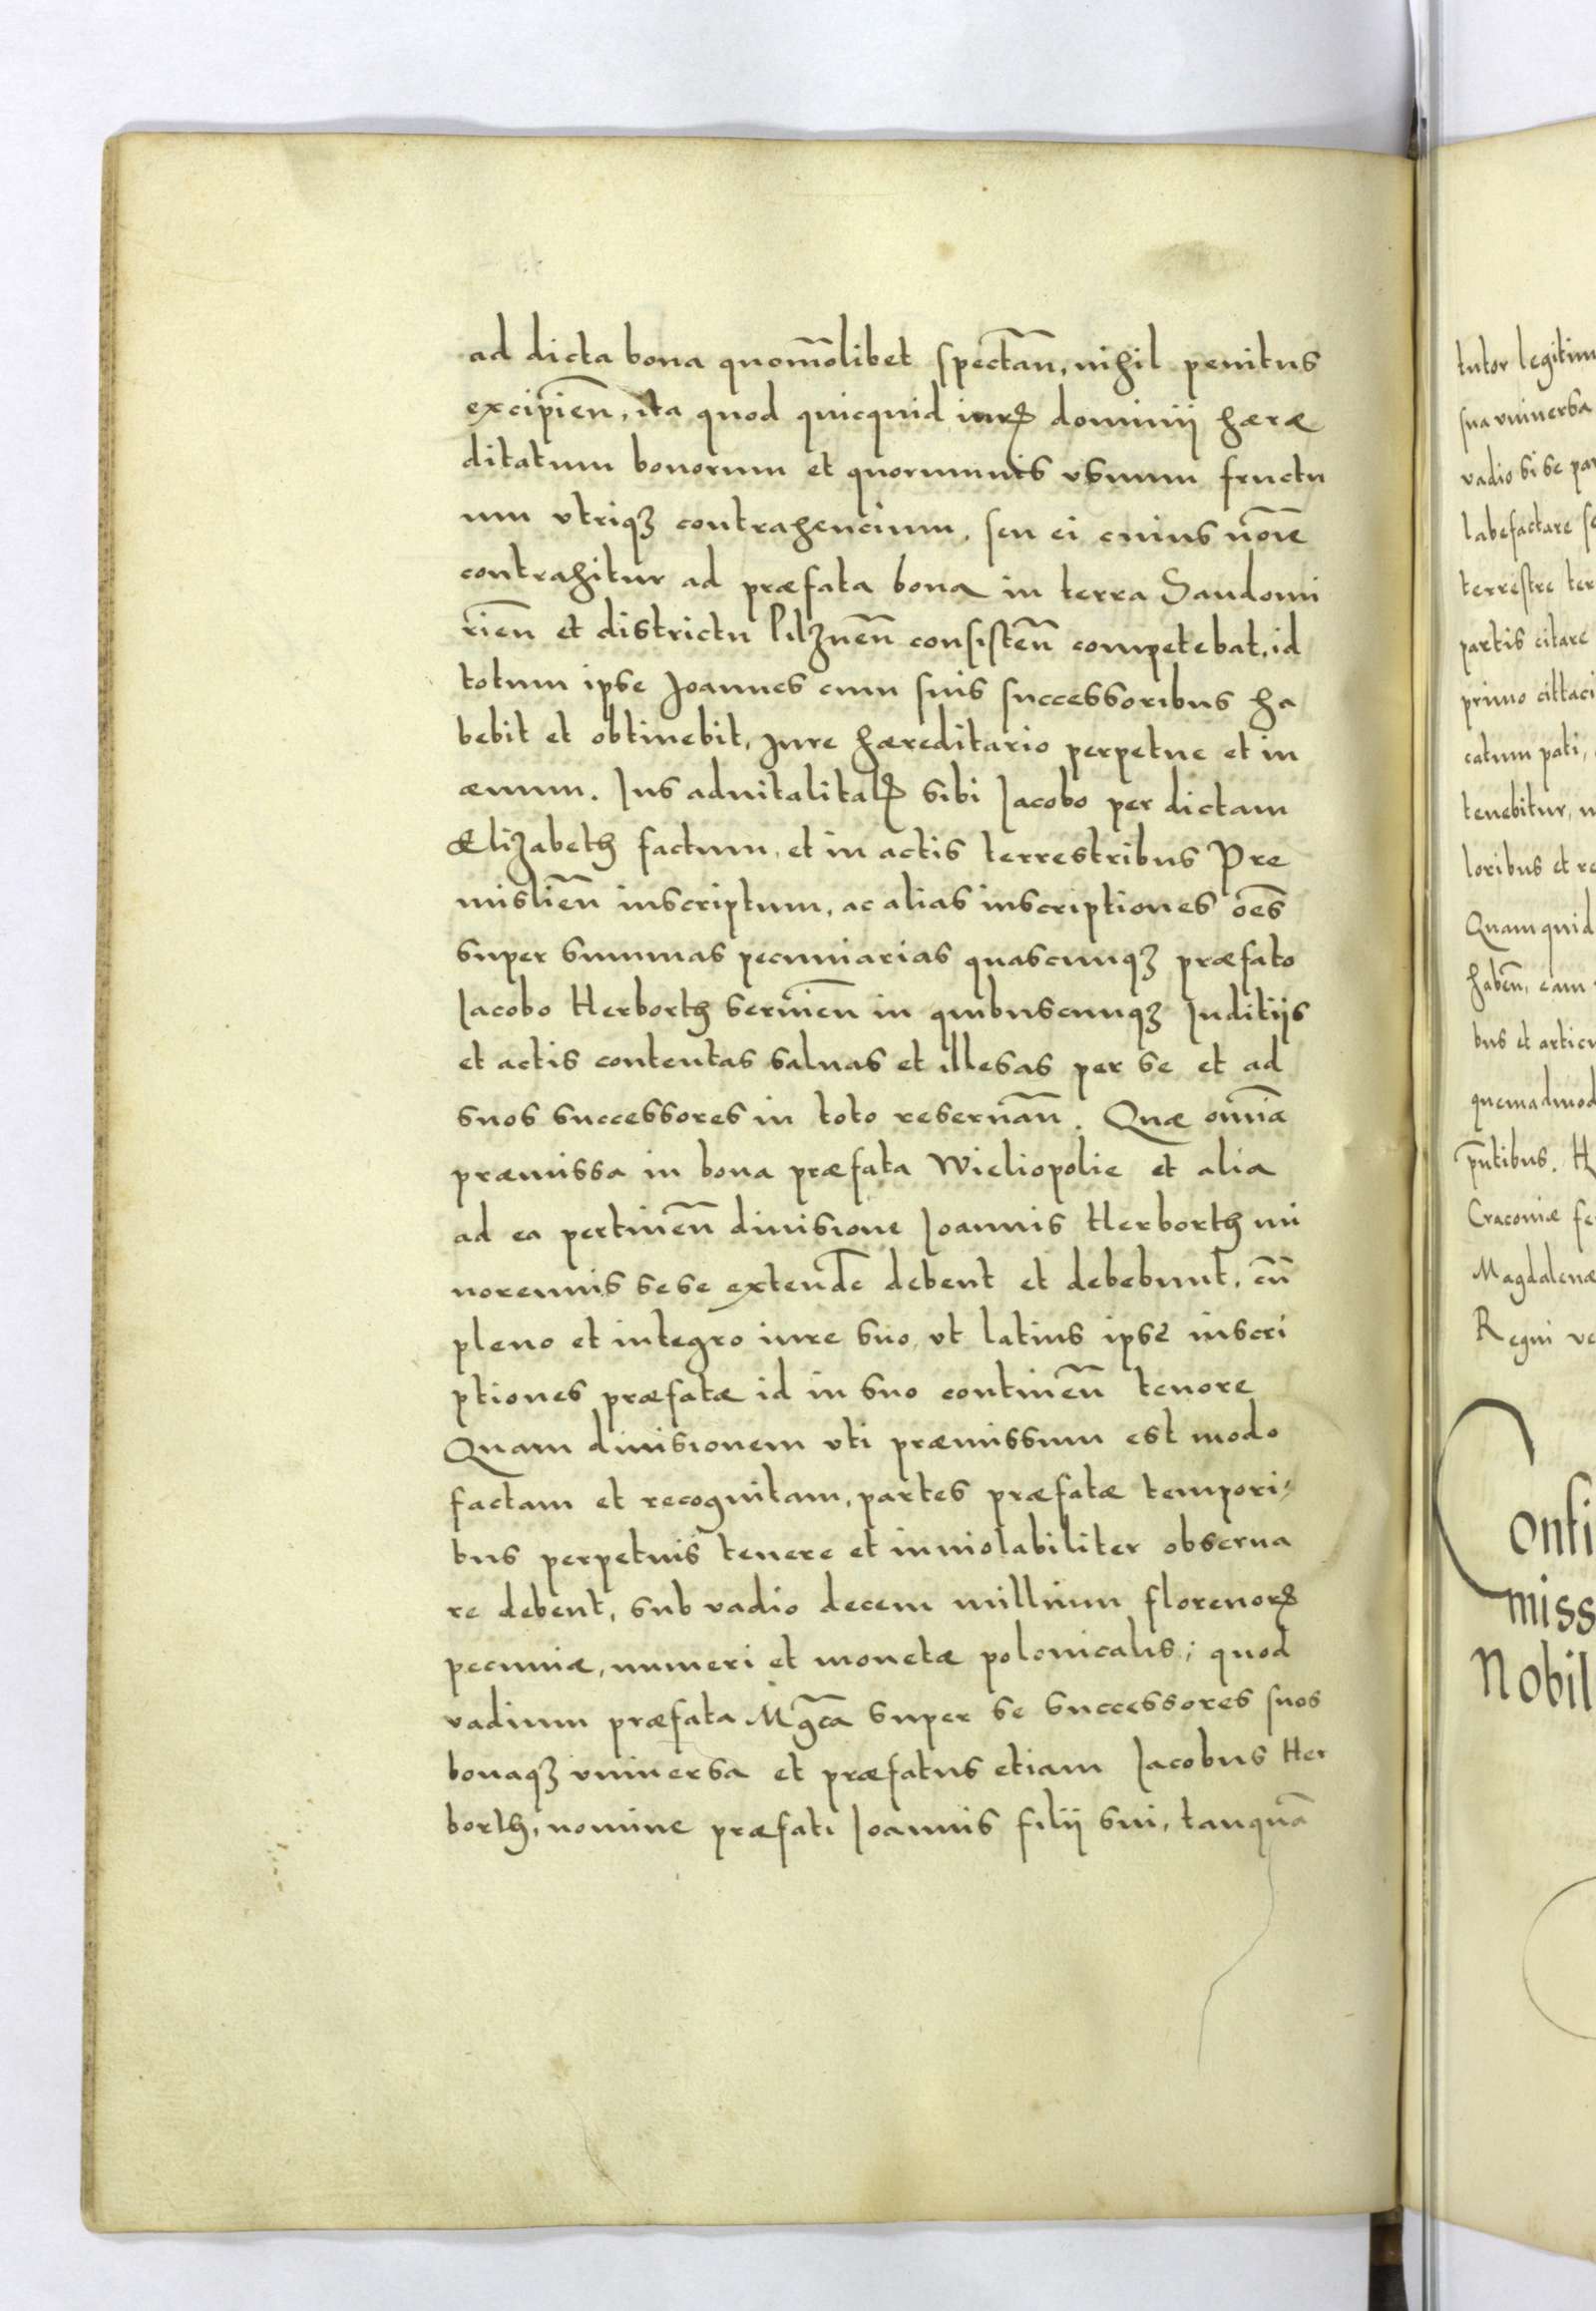 ad dicta bona quom̄olibet spectañ, nihil penitus
excipień, ita quod quicquid iurꝭ dominij hæræ
ditatum bonorum et quorumuis vsuum fructu
um vtriqꝫ contrahencium, seu ei cuius no͞ie
contrahitur ad præfata bona in terra Sandomi
rień et districtu Pilzneń consisteń competebat, id
totum ipse Joannes cum suis successoribus ha
bebit et obtinebit, Jure hæreditario perpetue et in
æuum. Ius aduitalitatꝭ sibi Jacobo per dictam
Ælizabeth factum, et in actis terrestribus Pre
mislień inscriptum, ac alias inscriptiones o͞es
super summas pecuniarias quascunqꝫ præfato
Jacobo Herborth seruień in quibuscunqꝫ Juditijs
et actis contentas saluas et illesas per se et ad
suos successores in toto reseruań. Quæ omniā
præmissa in bona præfata Wieliopolie et alia
ad ea pertineń diuisione Joannis Herborth mi
norennis sese extend̄e debent et debebunt, cū
pleno et integro iure suo, vt latius ipsę inscri
ptiones præfatæ id in suo contineń tenore
Quam diuisionem vti præmissum est modo
factam et recognitam, partes præfatæ tempori⸗
bus perpetuis tenere et inuiolabiliter obserua
re debent, sub vadio decem millium florenorꝭ
pecuniæ, numeri et monetæ polonicalis; quod
vadium præfata Mg͞ca super se successores suos
bonaqꝫ vniuersa et præfatus etiam Jacobus Her
borth, nomine præfati Joannis filij sui, tanquā
tutor legitim
sua vniuersa
vadio si se par
labefactare se
terrestre ter
partis citare
primo cittaci
catum pati,
tenebitur, n
loribus et re
Quam quid
habeń, eam
bus et articu
quemadmod
pn͞tibus. H
Cracouiæ fe
Magdalenæ
Regni ve
Confi
miss
Nobil